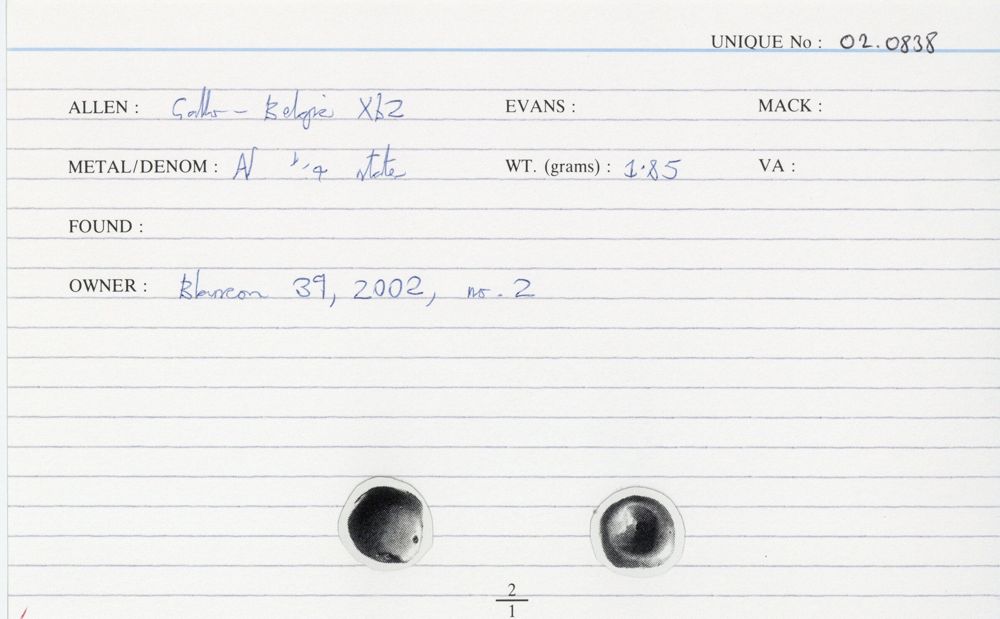 UNIQUE No : 02.0838
ALLEN : Gallo-Belgic Xb2 EVANS : MACK :
METAL/DENOM : AV 1/4 stater WT. (grams) : 1.85 VA :
FOUND :
OWNER : 39, 2002, no. 2
2
1